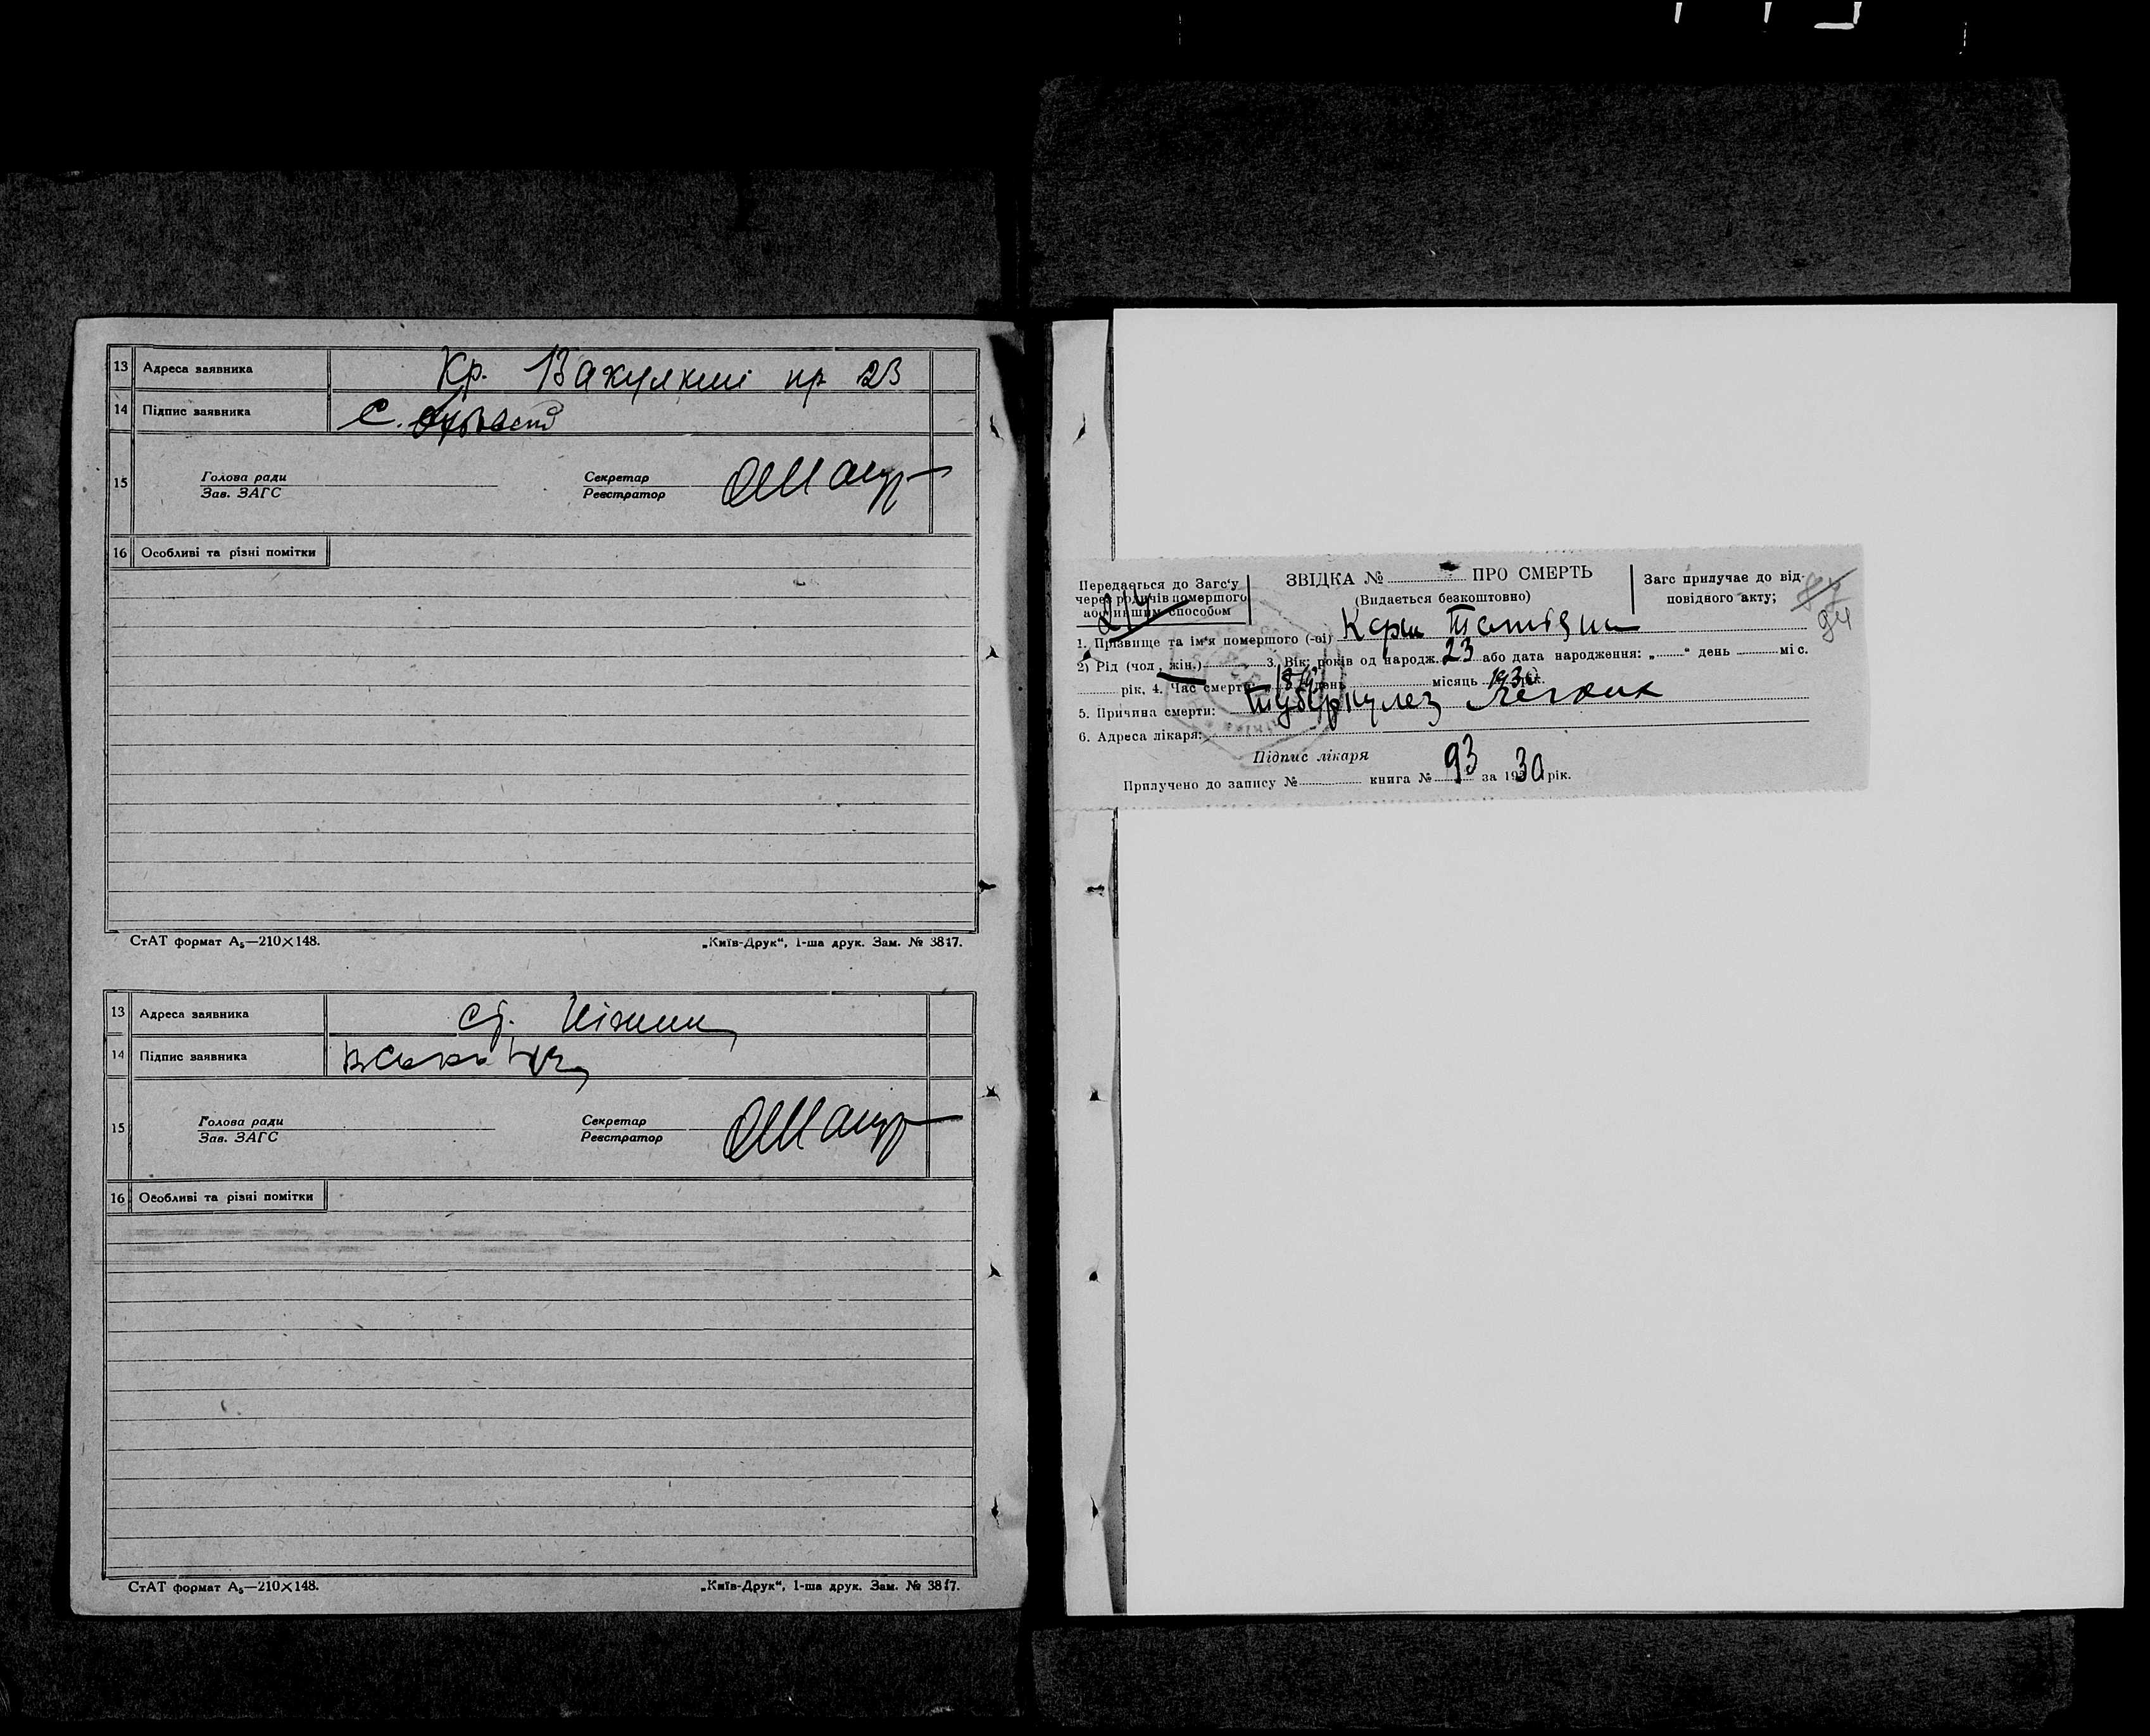 13 Адреса заявника Кр. нр 23
14 Підпис заявника С.
15 Голова ради Секретар
Зав. ЗАГС Реєстратор
16 Особливі та різні помітки
СтАТ формат А₅—210×148. „Київ-Друк“, 1-ша друк. Зам. № 3817.
13 Адреса заявника ст. Ніжин
14 Підпис заявника
15 Голова ради Секретар
Зав. ЗАГС Реєстратор
16 Особливі та різні помітки
СтАТ формат А₅—210×148. „Київ-Друк“, 1-ша друк. Зам. № 3817.
Передається до Загс'у
через родичів помершого
або иншим способом
2/4
ЗВІДКА № ПРО СМЕРТЬ
(Видається безкоштовно)
Загс прилучае до від-
повідного акту;
94
1. Прізвище та ім'я помершого (-ої)
2) Рід (чол, жін.) 3. Вік: років од народж. 23 або дата народження: „ “ день міс.
рік, 4. Час смерти день місяць 1930 рік.
5. Причина смерти: туберкулез легких
6. Адреса лікаря:
Підпис лікаря
Прилучено до запису № книга № 93 за 1930 рік.